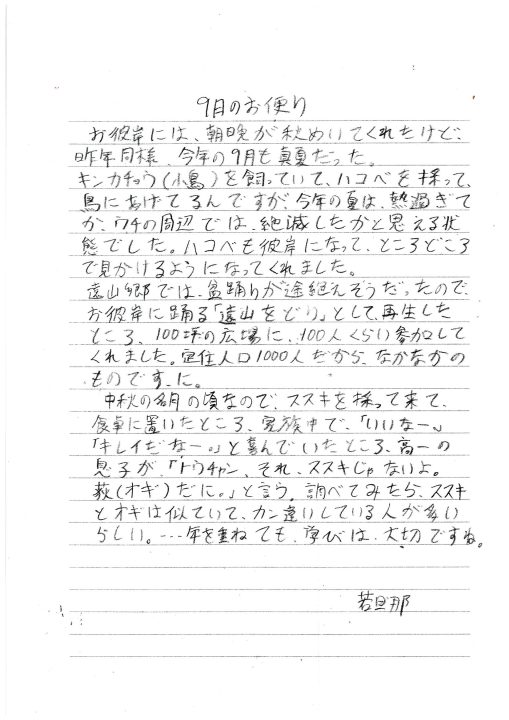 9月のお便り
お彼岸には、朝晩が秋めいてくれたけど、
昨年同様、今年の9月も真夏だった。
キンカチョウ(小鳥)を飼っていて、ハコベを採って、
鳥にあげてるんですが、今年の夏は、熱過ぎて
か、ウチの周辺では、絶滅したかと思える状
態でした。ハコベも彼岸になって、ところどころ
で見かけるようになってくれました。
遠山郷では、盆踊りが途絶えそうだったので、
お彼岸に踊る「遠山をどり」として、再生した
ところ、100坪の広場に、100人くらい参加して
くれました。定住人口1000人だから、なかなかの
ものです、に。
中秋の名月の頃なので、ススキを採って来て、
食卓に置いたところ、家族中で、「いいなー。」
「キレイだなー。」と喜んでいたところ、高一の
息子が、「トウチャン、それ、ススキじゃないよ。
荻(オギ)だに。」と言う。調べてみたら、ススキ
とオギは似ていて、カン違いしている人が多い
らしい。---年を重ねても、学びは、大切ですね。
若旦那